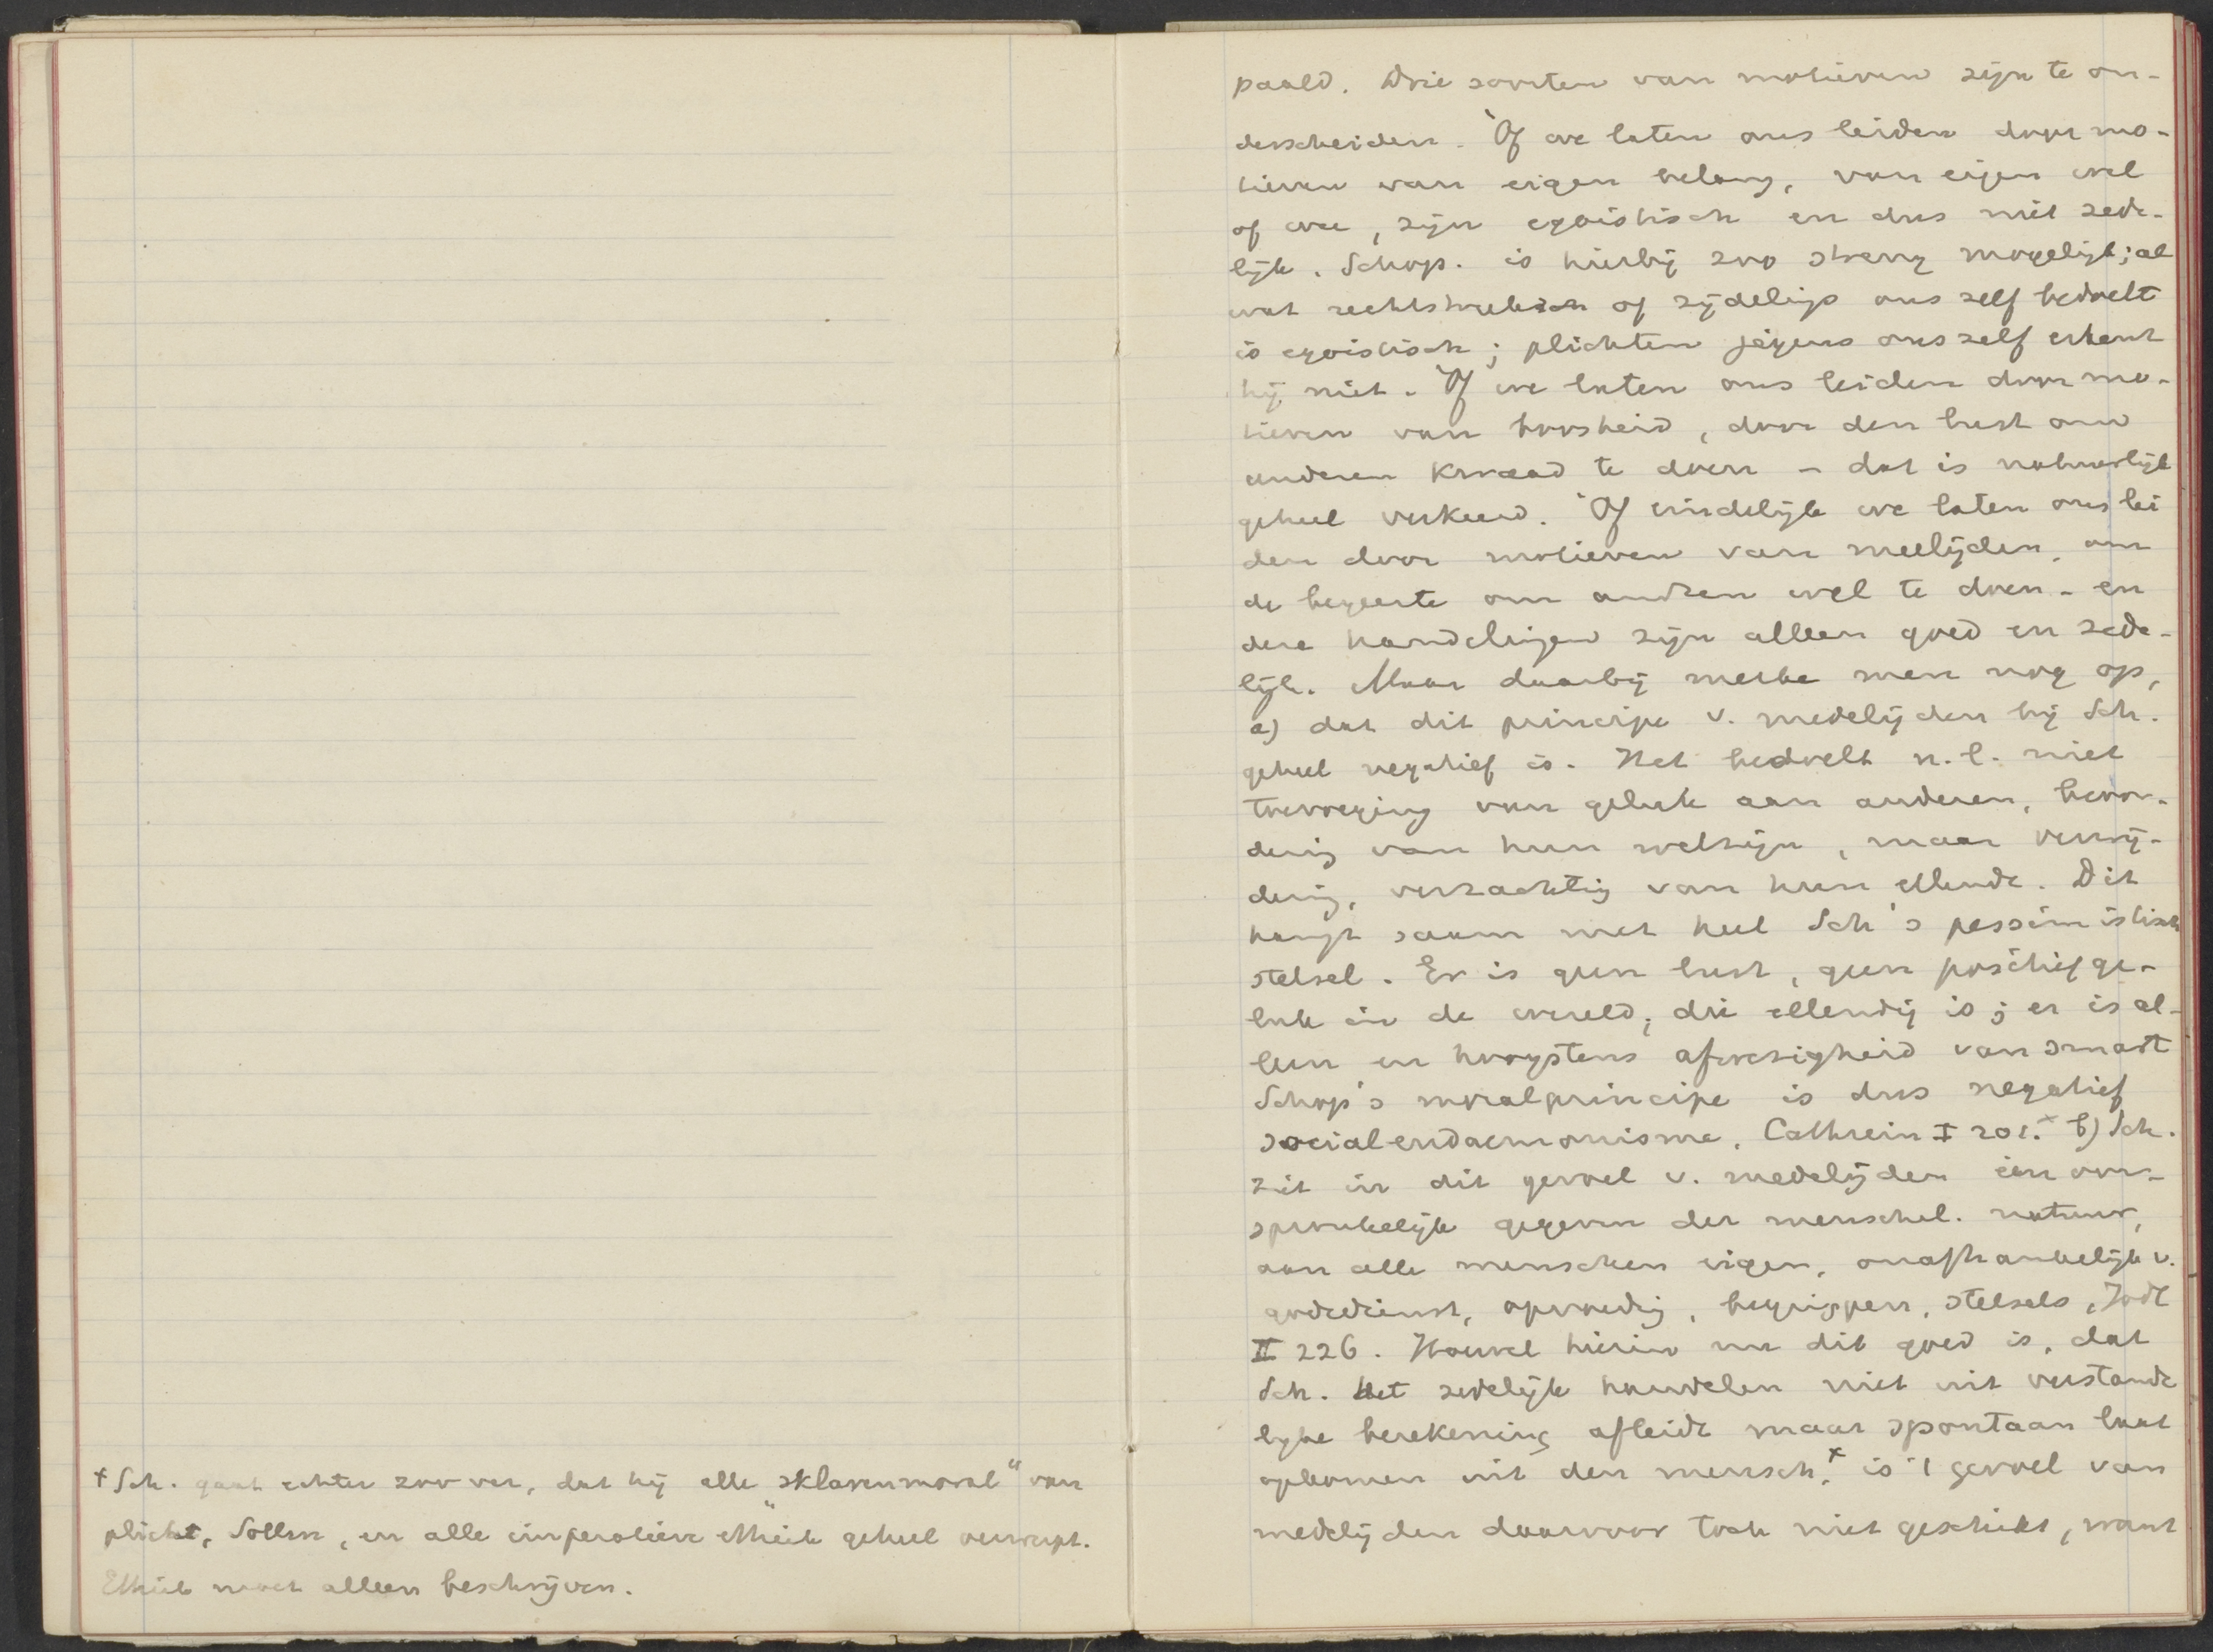 † Sch. gaat echter zoo ver, dat hij alle "sklavenmoral" van
plicht, Sollen, en alle imperatieve ethiek geheel verwerpt.
Ethiek moet alleen beschrijven.
paald. Drie soorten van motieven zijn te on-
derscheiden. Òf we laten ons leiden door mo-
tieven van eigen belang, van eigen wel
of wee, zijn egoistisch en dus niet zede-
lijk. Schop. is hierbij zoo streng mogelijk; al
wat rechtstreeksch of zijdelings ons zelf bedoelt
is egoistisch; plichten jegens ons zelf erkent
hij niet. Òf we laten ons leiden door mo-
tieven van boosheid, door den lust om
anderen kwaad te doen - dat is natuurlijk
geheel verkeerd. Òf eindelijk we laten ons lei
den door motieven van meelijden, om
de begeerte om andren wel te doen - en
deze handelingen zijn alleen goed en zede-
lijk. Maar daarbij merke men nog op,
a) dat dit principe v. medelijden bij Sch.
geheel negatief is. Het bedoelt n.l. niet
toevoeging van geluk aan anderen, bevor-
dering van hun welzijn, maar vermij-
dering, verzachting van hun ellende. Dit
hangt saam met heel Sch's pessimistisch
stelsel. Er is geen lust, geen positief ge-
luk in de wereld, die ellendig is; er is al-
leen en hoogstens afwezigheid van smart
Schop's moralprincipe is dus negatief
socialeudaemonisme. Cathrein I 201.× b) Sch.
ziet in dit gevoel v. medelijden een oor-
spronkelijk gegeven der menschel. natuur,
aan alle menschen eigen, onafhankelijk v.
godsdienst, opvoeding, begrippen, stelsels, Jodl
II 226. Hoewel hierin nu dit goed is, dat
Sch. het zedelijk handelen niet uit verstande
lijke berekening afleidt maar spontaan laat
opkomen uit den mensch,× is 't gevoel van
medelijden daarvoor toch niet geschikt, want